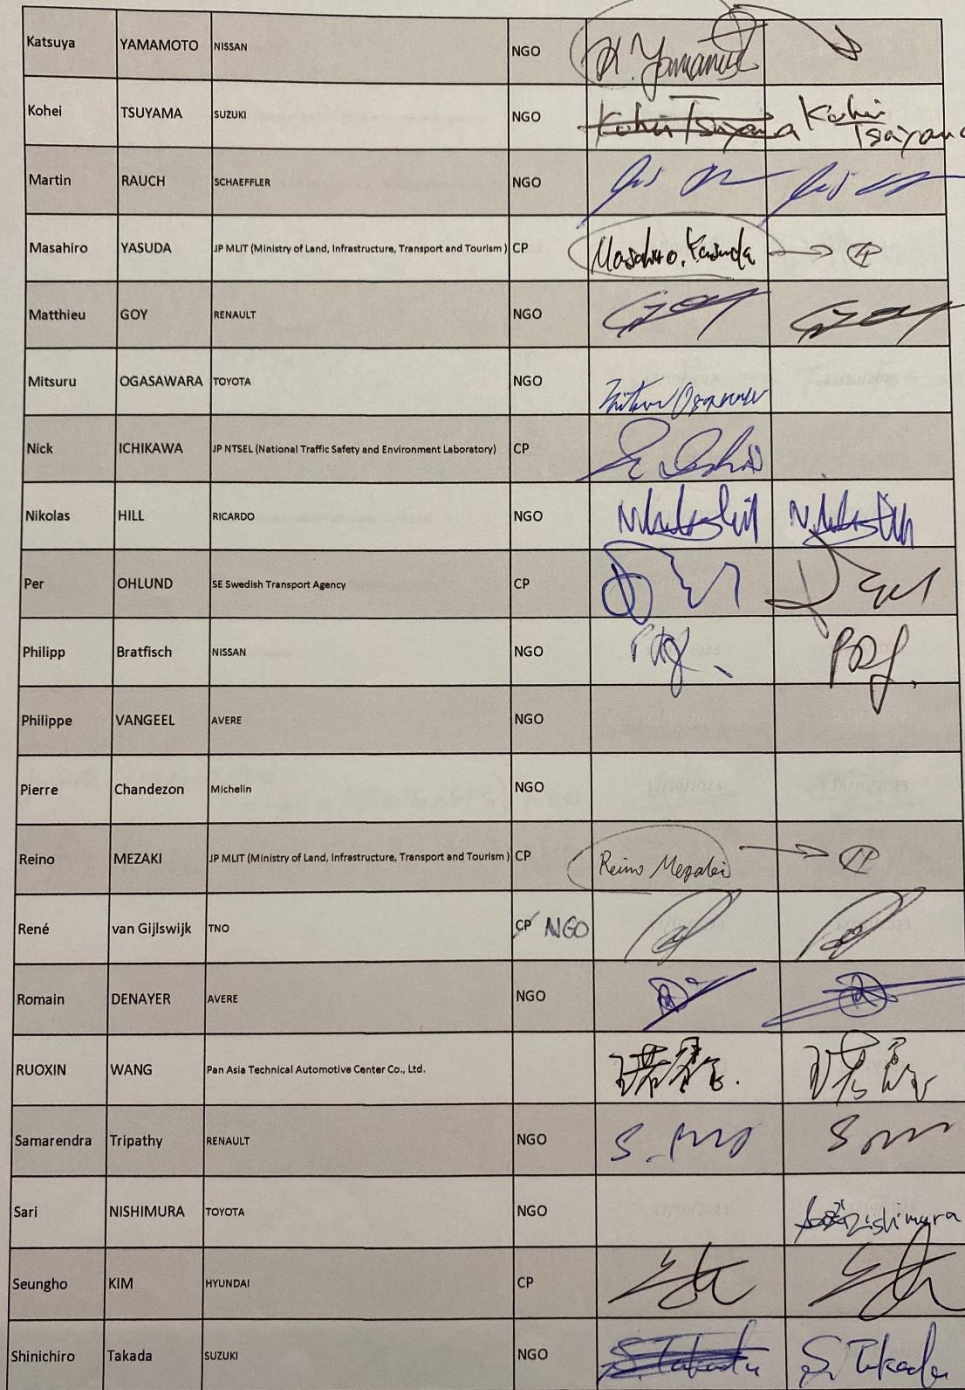 Katsuya YAMAMOTO NISSAN NGO K. Yamamoto
Kohei TSUYAMA SUZUKI NGO Kohei Tsuyama Kohei Tsuyama
Martin RAUCH SCHAEFFLER NGO
Masahiro YASUDA JP MLIT (Ministry of Land, Infrastructure, Transport and Tourism) CP Masahiro. Yasuda
Matthieu GOY RENAULT NGO GOY GOY
Mitsuru OGASAWARA TOYOTA NGO Mitsuru Ogasawara
Nick ICHIKAWA JP NTSEL (National Traffic Safety and Environment Laboratory) CP
Nikolas HILL RICARDO NGO Nikolas Hill Nikolas Hill
Per OHLUND SE Swedish Transport Agency CP
Philipp Bratfisch NISSAN NGO
Philippe VANGEEL AVERE NGO
Pierre Chandezon Michelin NGO
Reino MEZAKI JP MLIT (Ministry of Land, Infrastructure, Transport and Tourism) CP Reino Mezaki
René van Gijlswijk TNO CP NGO
Romain DENAYER AVERE NGO
RUOXIN WANG Pan Asia Technical Automotive Center Co., Ltd.
Samarendra Tripathy RENAULT NGO
Sari NISHIMURA TOYOTA NGO Nishimura
Seungho KIM HYUNDAI CP
Shinichiro Takada SUZUKI NGO S. Takada S. Takada